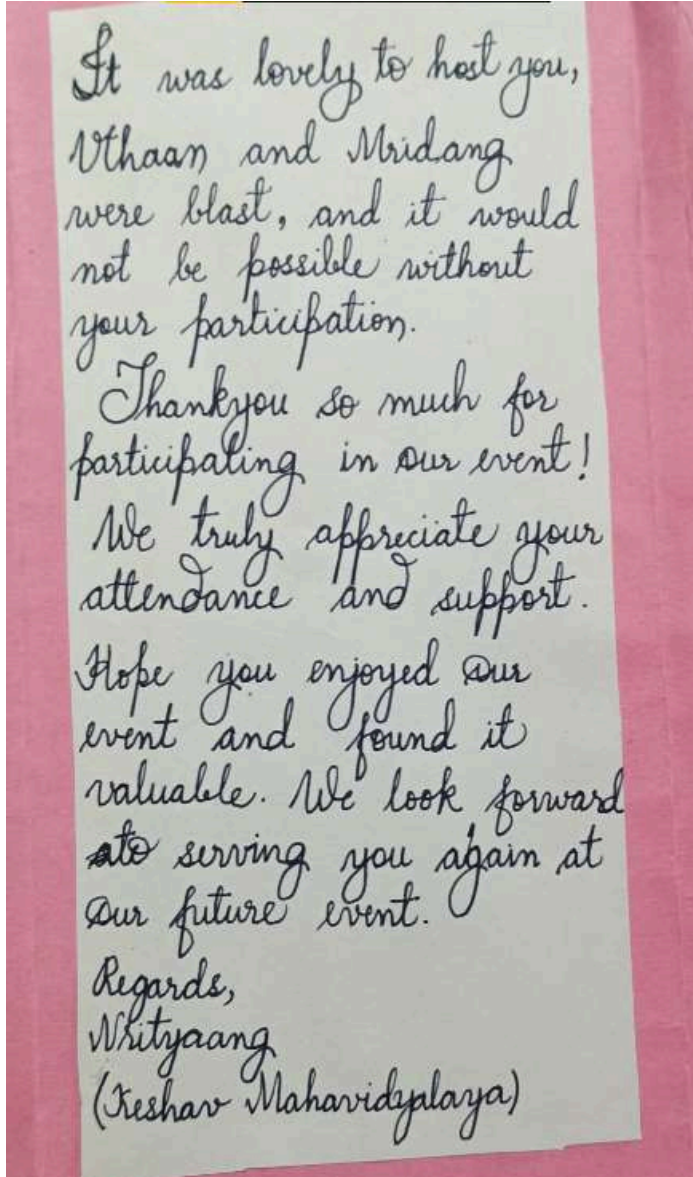 It was lovely to host you,
Uthaan and Mridang
were blast, and it would
not be possible without
your participation.
Thankyou so much for
participating in our event!
We truly appreciate your
attendance and support.
Hope you enjoyed our
event and found it
valuable. We look forward
to serving you again at
our future event.
Regards,
Nrityaang
(Keshav Mahavidyalaya)